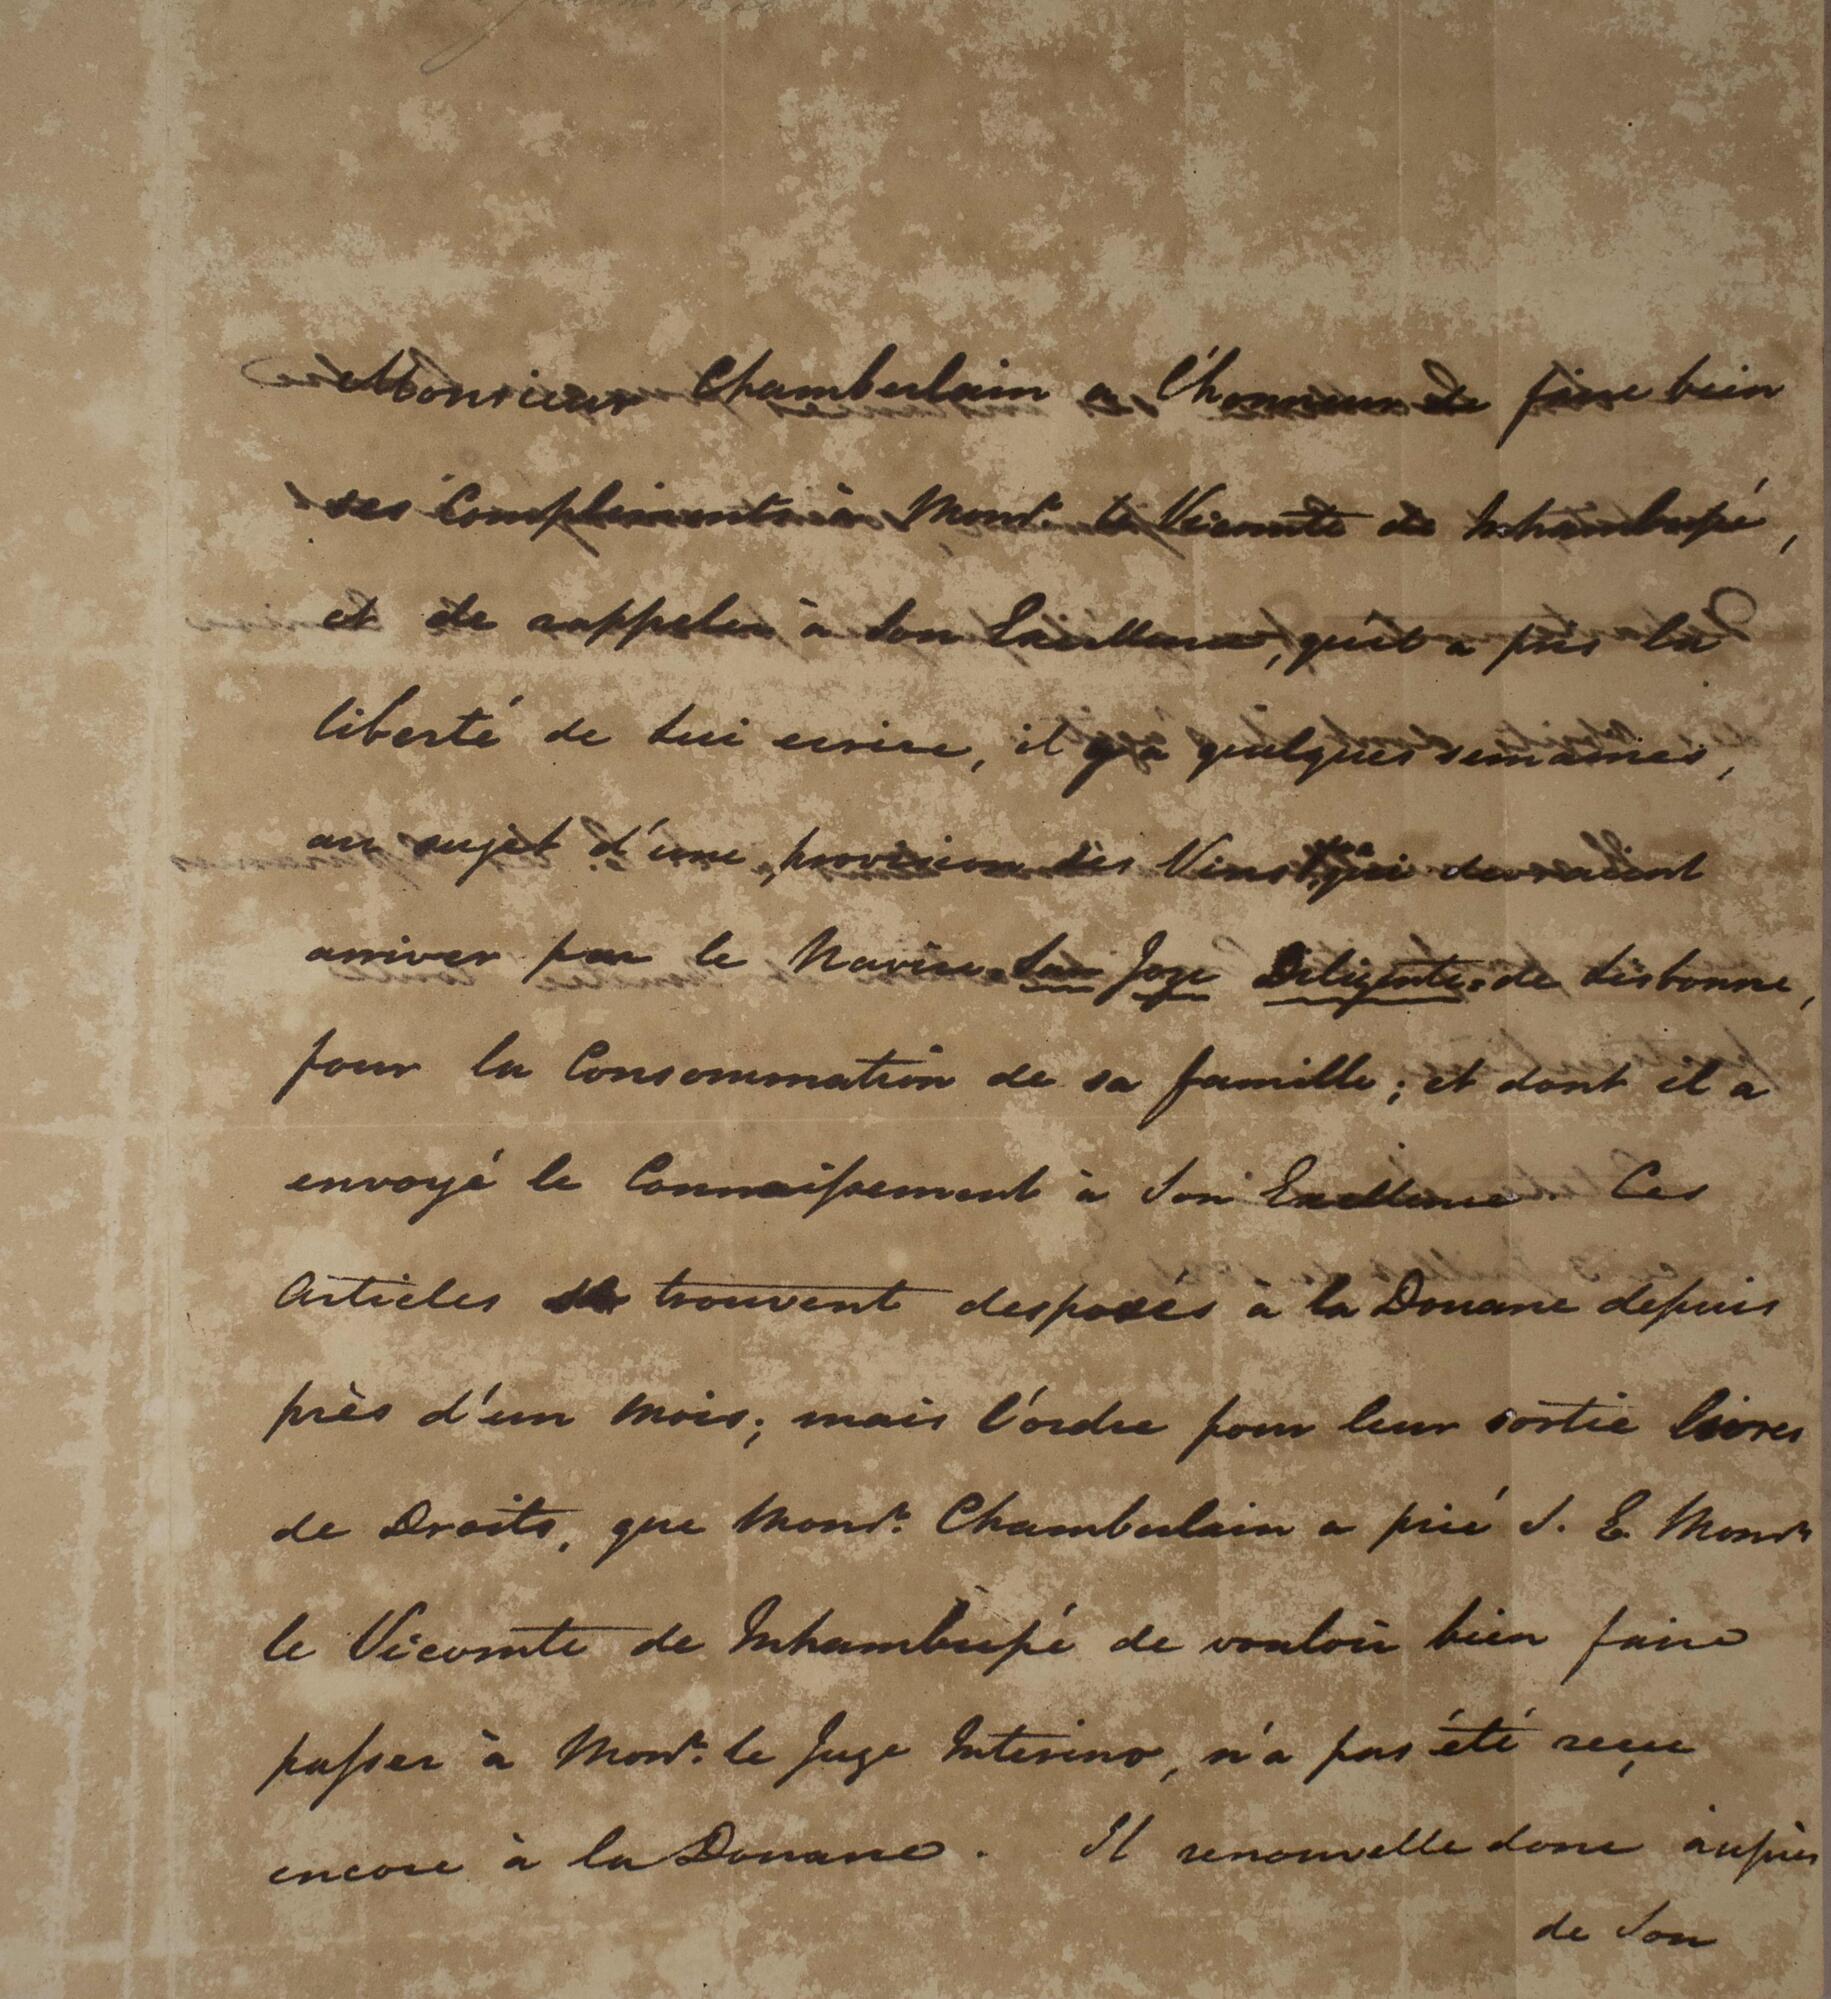 Monsieur Chamberlain a l'honneur de faire bien
ses Compliments à Monsr. le Vicomte de Inhambupé,
et de rappeler à Son Excellence, qu'il a pris la
liberté de lui ecrire, il y a quelques semaines,
au sujet d'une provision des Vins qui devraient
arriver par le Navire "San Joze Deligente" de Lisbonne,
pour la Consommation de sa famille; et dont il a
envoyé le Connaissement à Son Excellence. Ces
Articles se trouvent desposés à la Douane depuis
près d'un mois; mais l'ordre pour leur sortie livres
de Droits, que Monsr. Chamberlain a prié S. E. Monsr
le Vicomte de Inhambupé de vouloir bien faire
passer à Monsr. le Juge Interino, n'a pas été reçu
encore à la Douane. Il renouvelle donc auprès
de Son